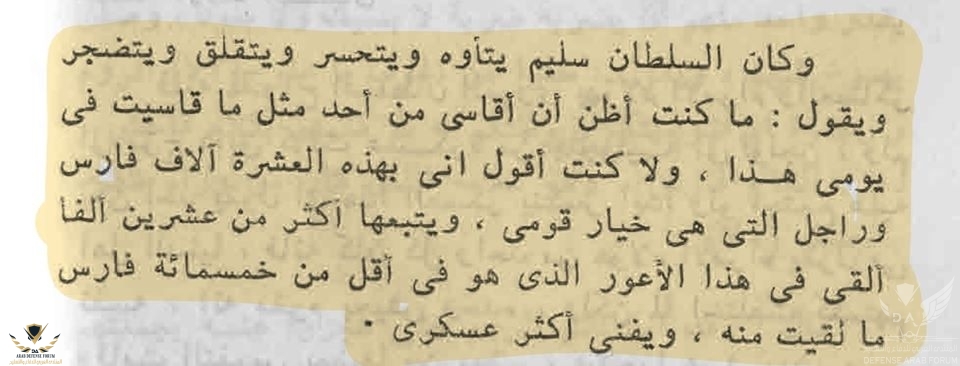 وكان السلطان سليم يتأوه ويتحسر ويتقلق ويتضجر
ويقول : ما كنت أظن أن أقاسى من أحد مثل ما قاسيت فى
يومى هــذا ، ولا كنت أقول انى بهذه العشرة آلاف فارس
وراجل التى هى خيار قومى ، ويتبعها أكثر من عشرين ألفا
ألقى فى هذا الأعور الذى هو فى أقل من خمسمائة فارس
ما لقيت منه ، ويفنى أكثر عسكرى ·
DA
ARAB DEFENSE FORUM
DA
DEFENSE ARAB FORUM